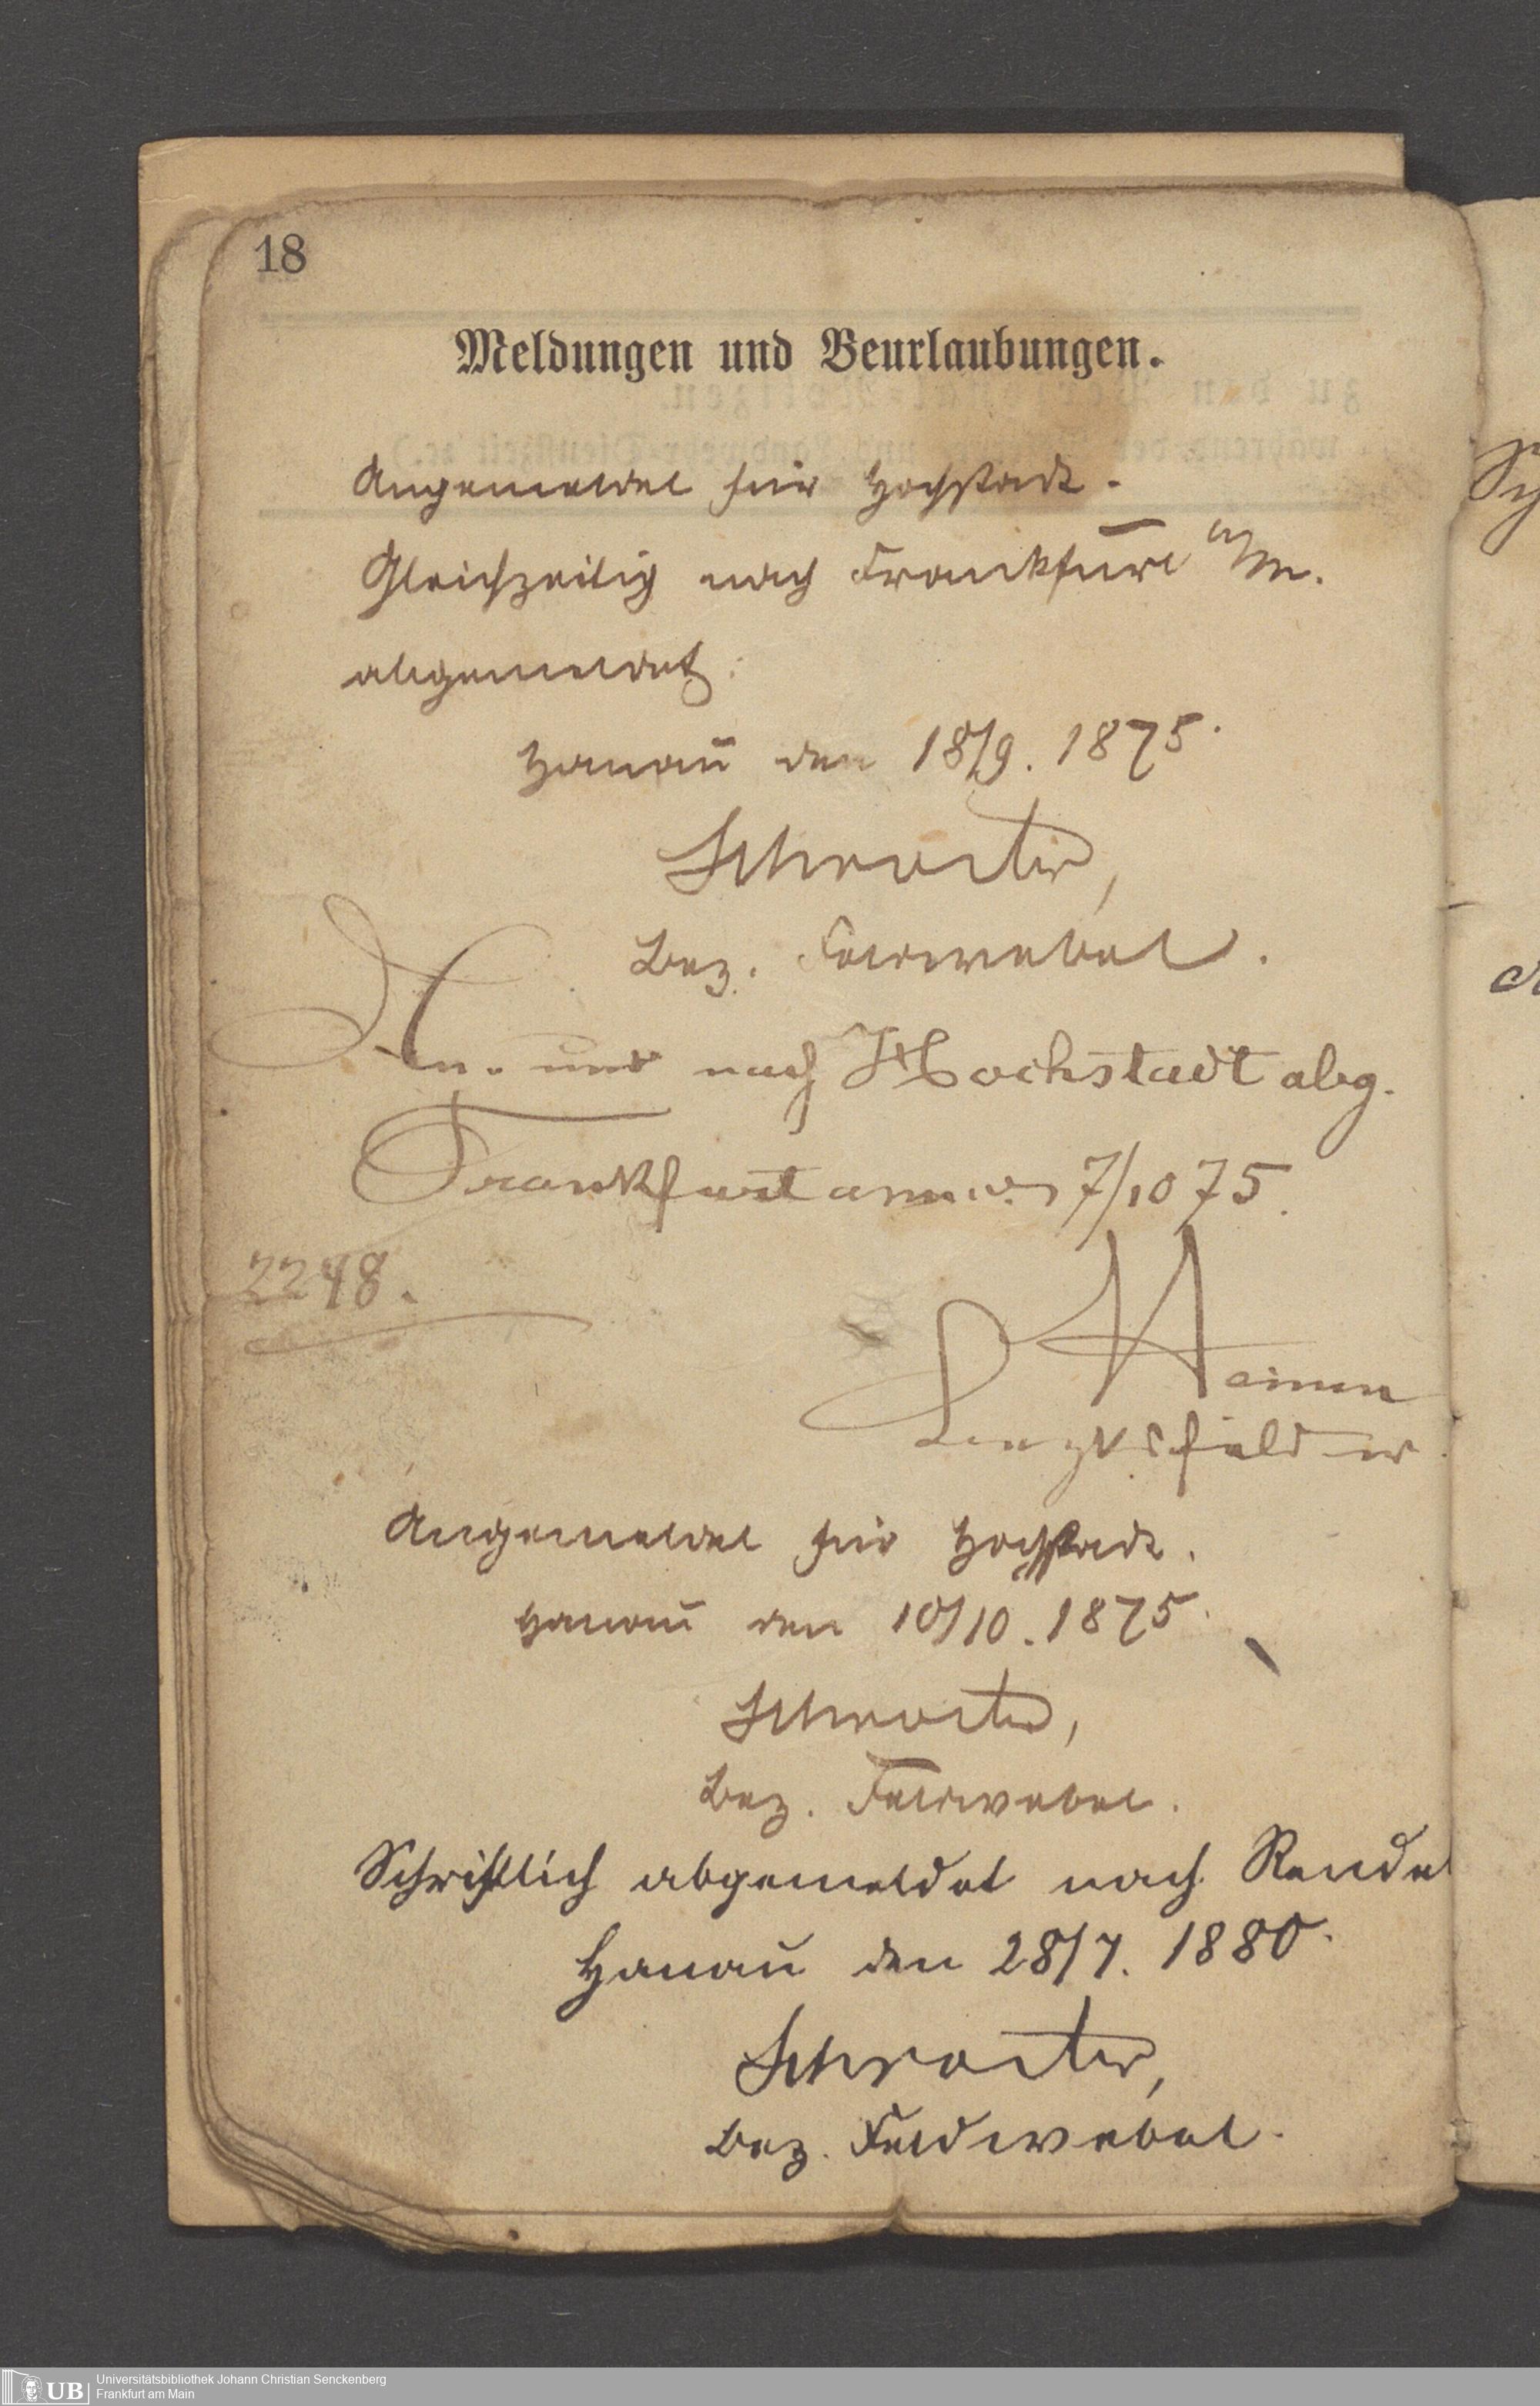 18
Meldungen und Beurlaubungen.
Angemeldet für Hochstadt.
Gleichzeitig nach Frankfurt a/M.
abgemeldet.
Hanau den 18/9. 1875.
Schroeter,
Bez. Feldwebel.
An- und nach Hochstadt abg.
Frankfurt 7/10 75.
2248.
Bezksfeldw
Angemeldet für Hochstadt.
Hanau den 10/10. 1875.
Schroeter,
Bez. Feldwebel.
Schriftlich abgemeldet nach Rendel
Hanau den 28/7. 1880.
Schroeter,
Bez. Feldwebel.
UB
Universitätsbibliothek Johann Christian Senckenberg
Frankfurt am Main